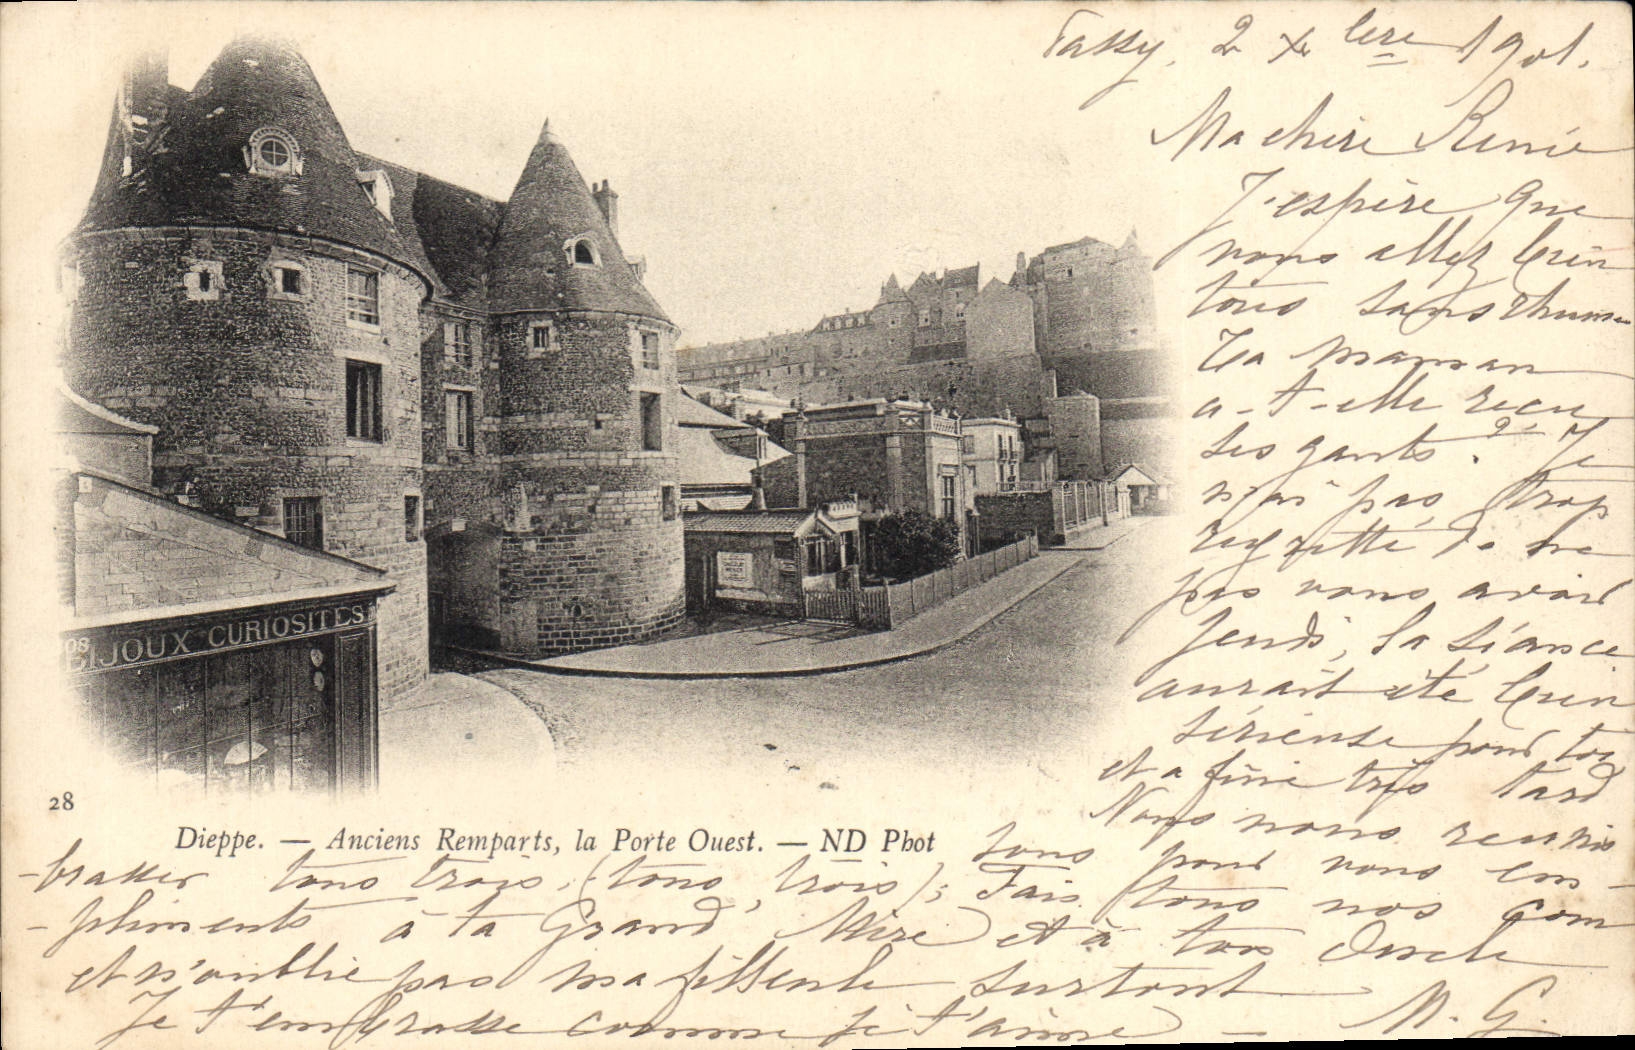 Passy, 2 Xbre 1901.
Ma chère Renée
J'espère que
vous allez bien
tous sans rhume
Ta maman
a-t-elle reçu
ses gants? Je
n'ai pas trop
regretté de ne
pas vous avoir
Jeudi, la séance
aurait été bien
sérieuse pour toi
et a fini très tard
Nous nous réunis
sons pour vous em-
-brasser tous trois, (tous, trois); Fais tous nos com
-pliments à ta Grand' Mère et à ton Oncle
et n'oublie pas ma filleule surtout
Je t'embrasse comme je t'aime - M. G.
BIJOUX CURIOSITES
28
Dieppe. — Anciens Remparts, la Porte Ouest. — ND Phot